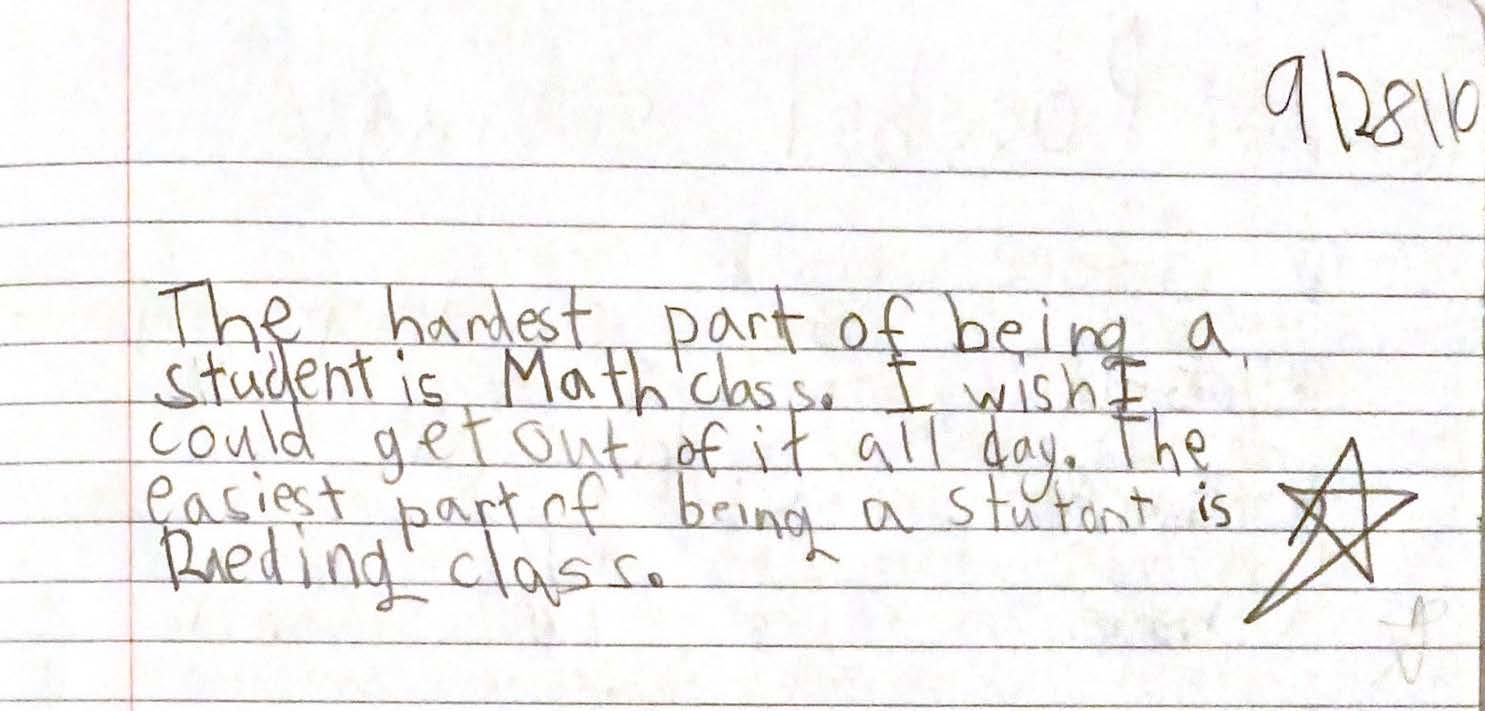 9/28/10
The hardest part of being a
student is Math class. I wish I
could get out of it all day. The
easiest part of being a stutant is
Reeding class.